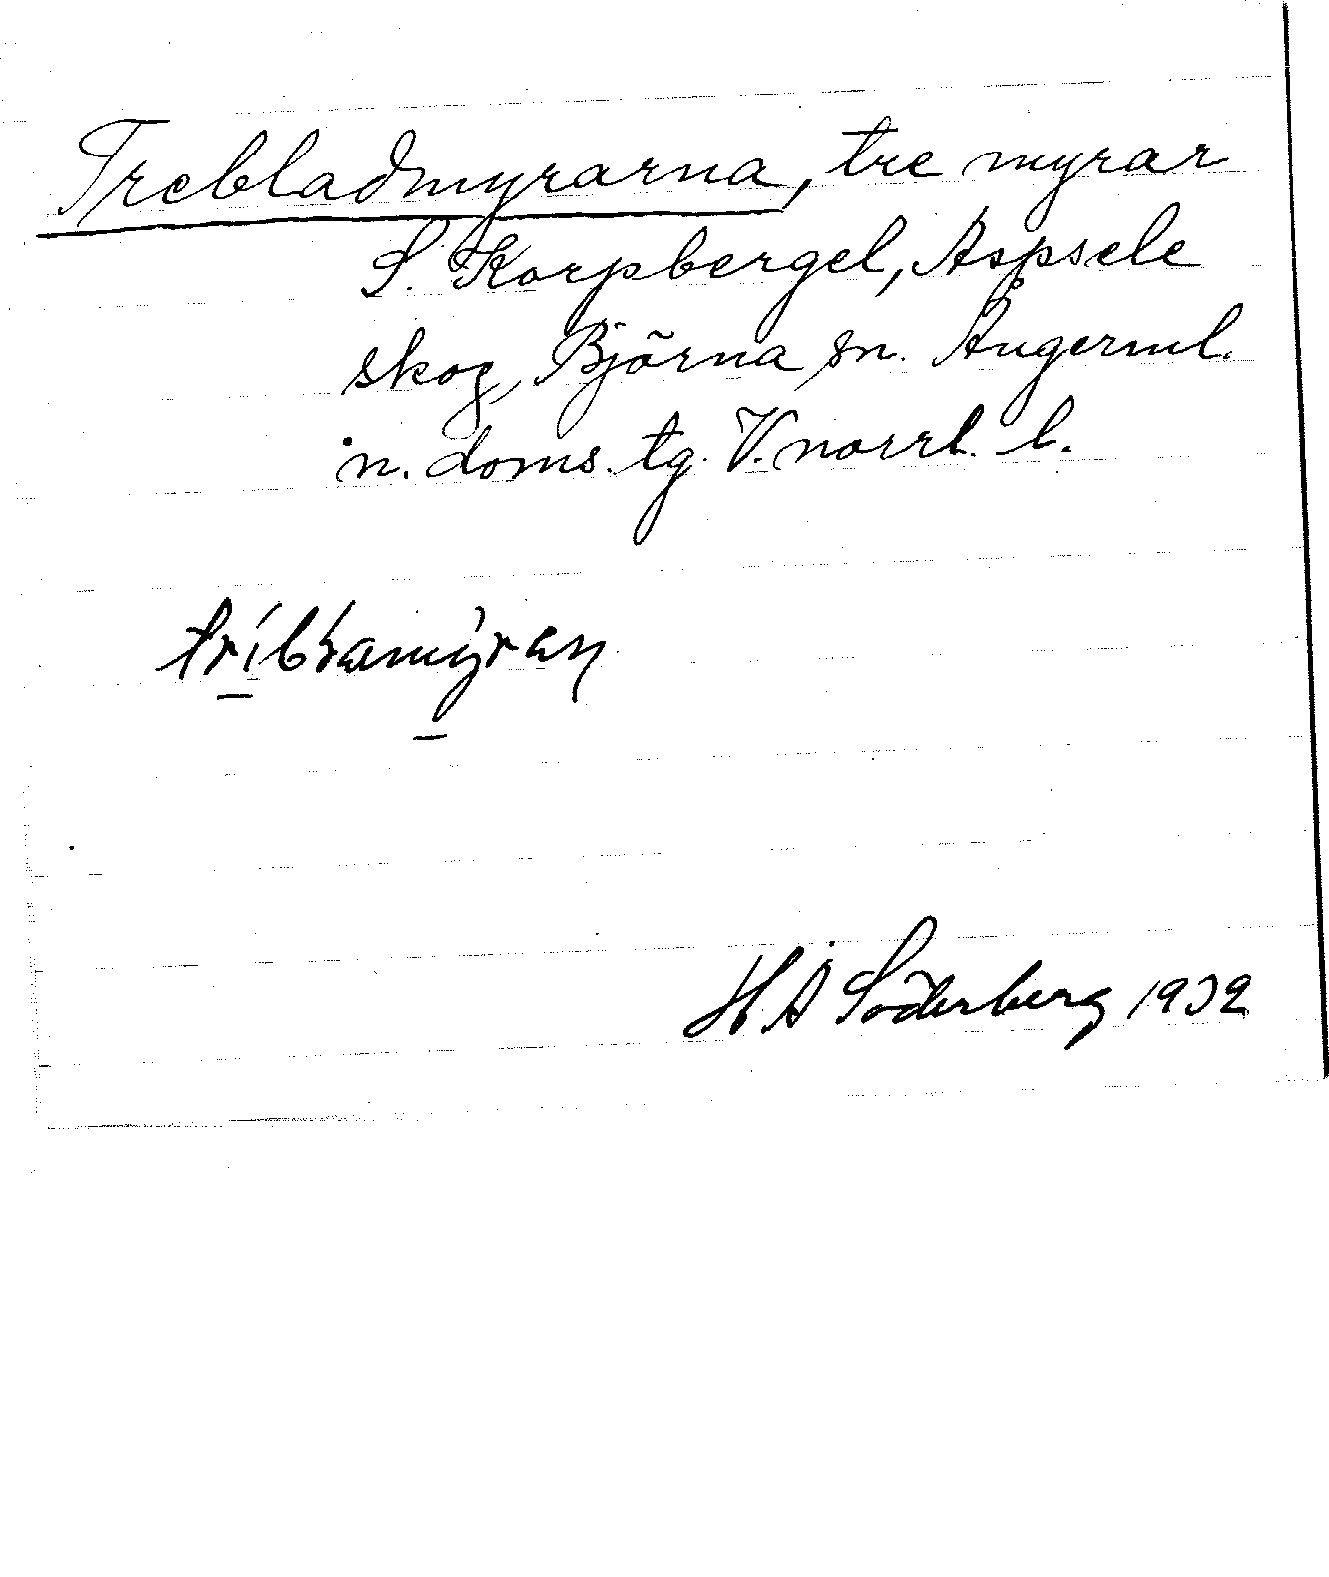 Trebladmyrarna, tre myrar
S. Korpberget, Aspsele
skog, Björna sn. Ångerml.
n. doms. tg. V. norrl. l.
H Å Söderberg 1932